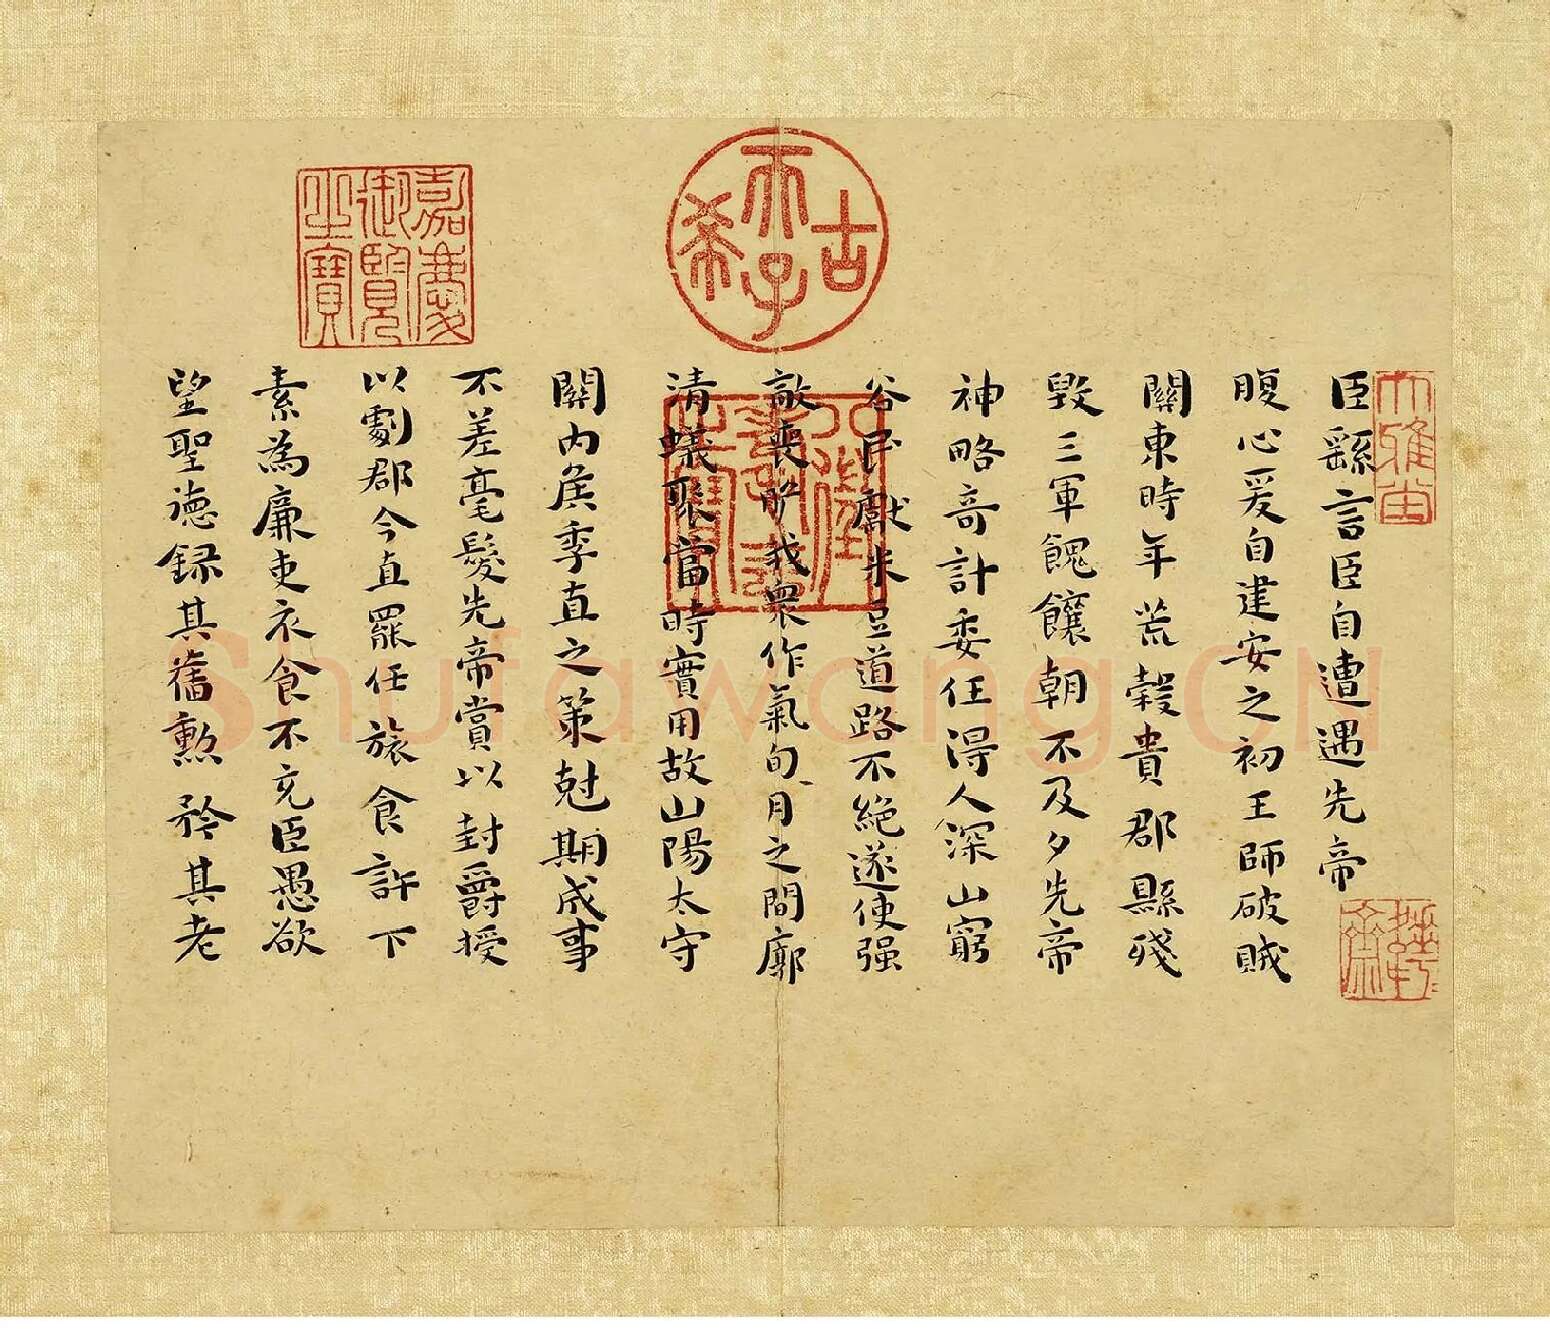 臣繇言臣自遭遇先帝
腹心爰自建安之初王師破賊
關東時年荒穀貴郡縣殘
毀三軍餽饟朝不及夕先帝
神略奇計委任得人深山窮
谷民獻米豆道路不絕遂使强
敵喪膽我衆作氣旬月之間廓
清蟻聚當時實用故山陽太守
關內侯季直之策尅期成事
不差毫髮先帝賞以封爵授
以劇郡今直罷任旅食許下
素為廉吏衣食不充臣愚欲
望聖德錄其舊勲矜其老
古希天子
嘉慶御覽之寶
八徵耄念之寶
大雅堂
shufawang.CN